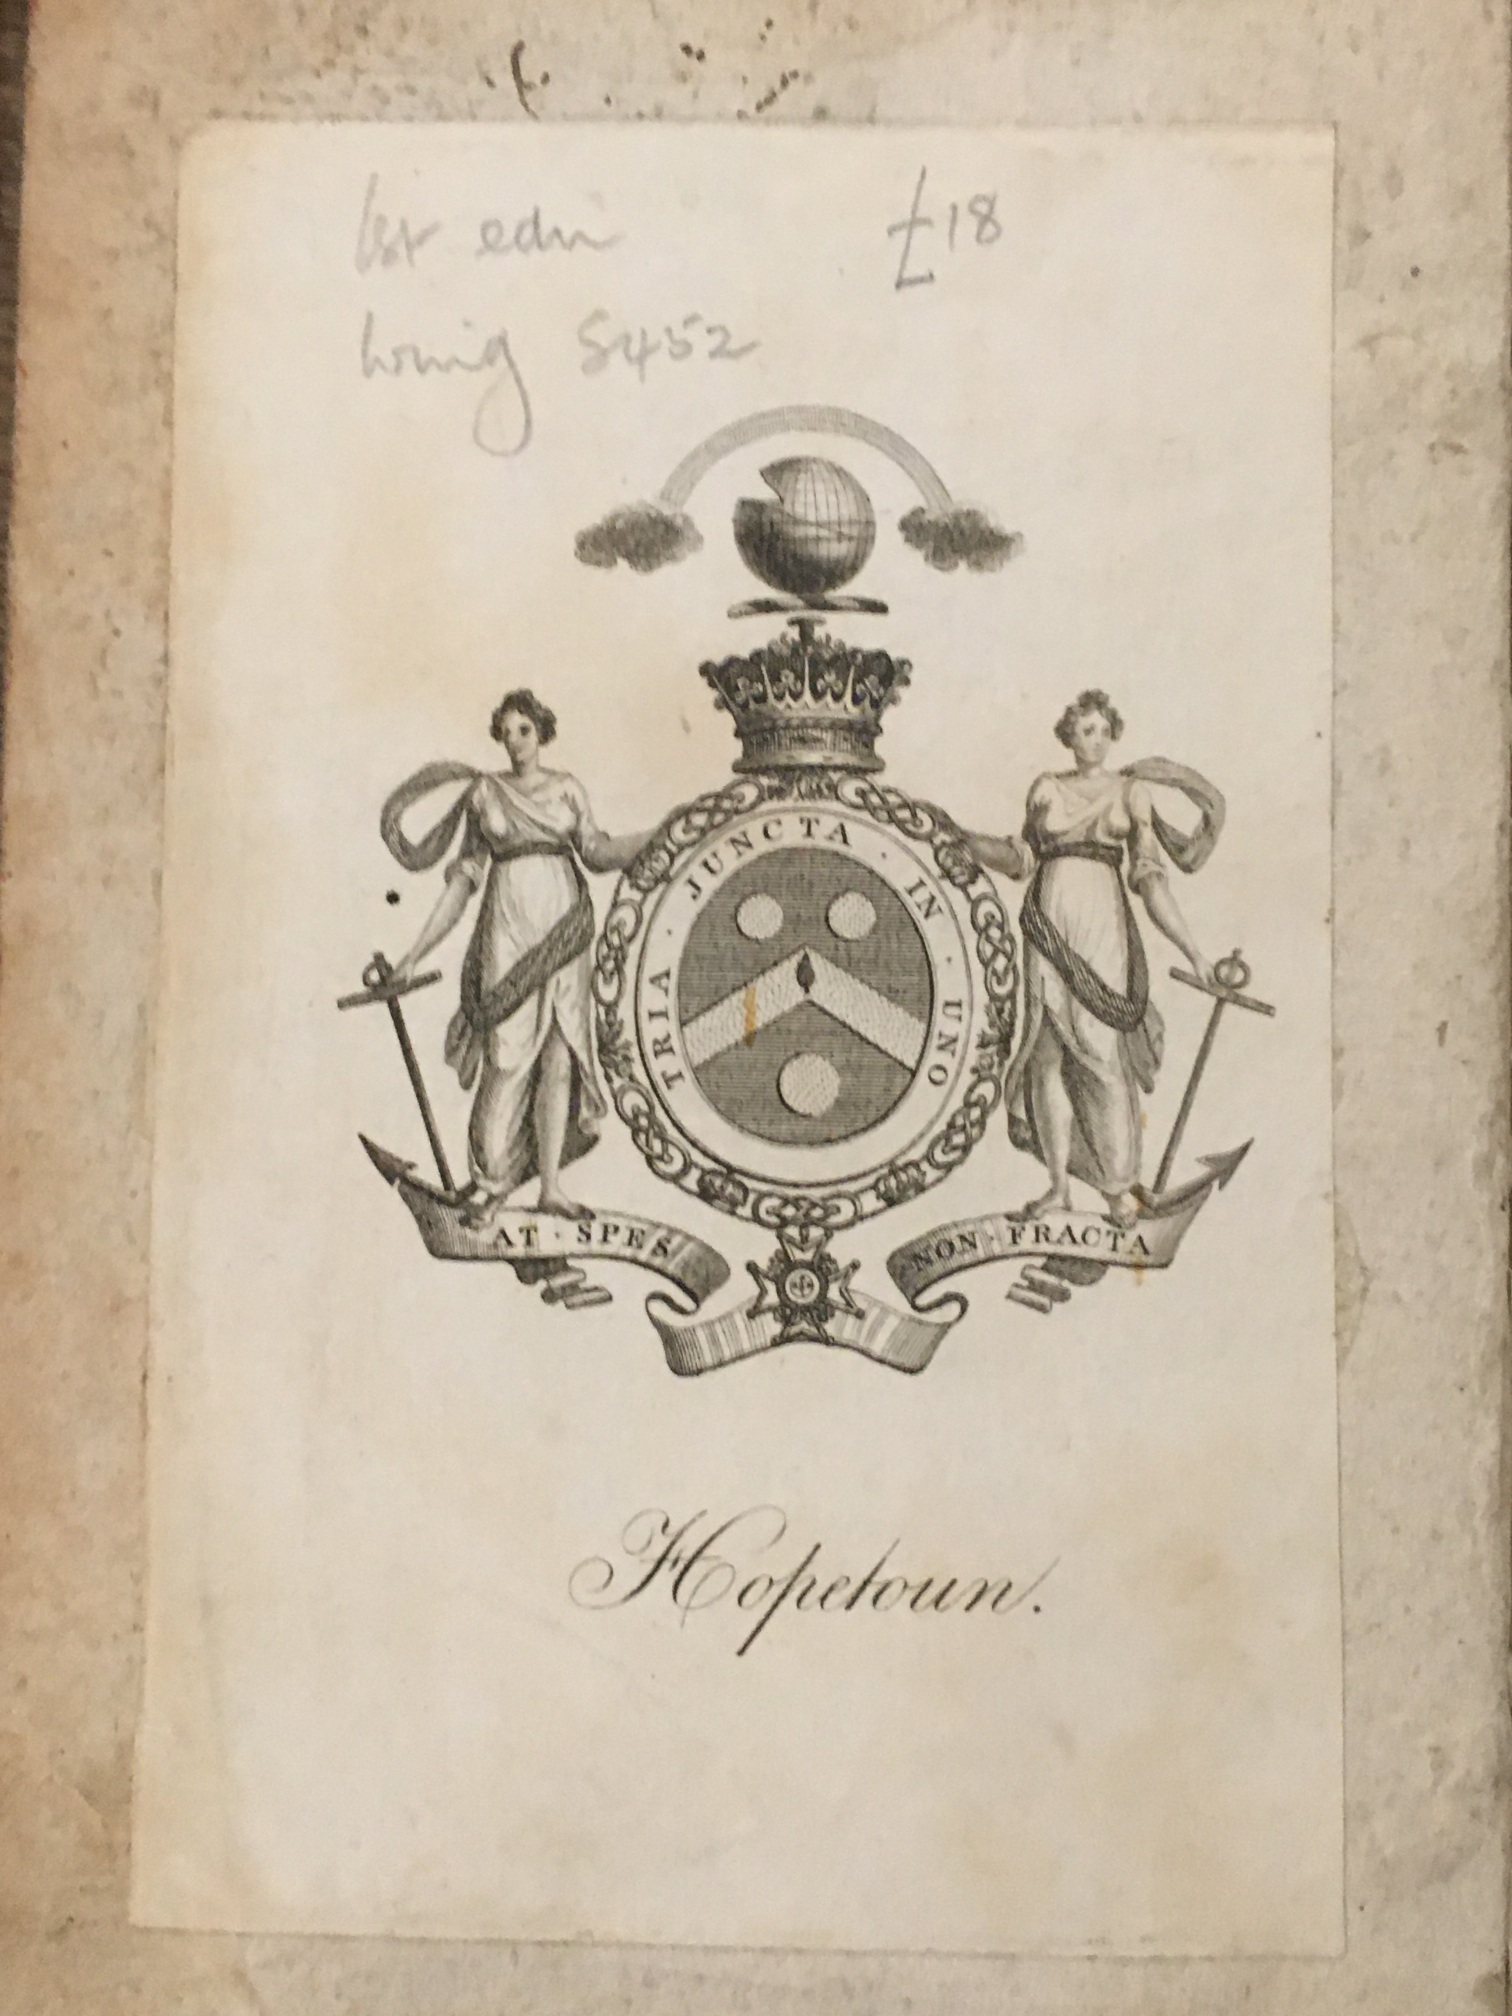 1st edn £18
Wing S452
TRIA · JUNCTA · IN · UNO
AT · SPES NON · FRACTA
Hopetoun.